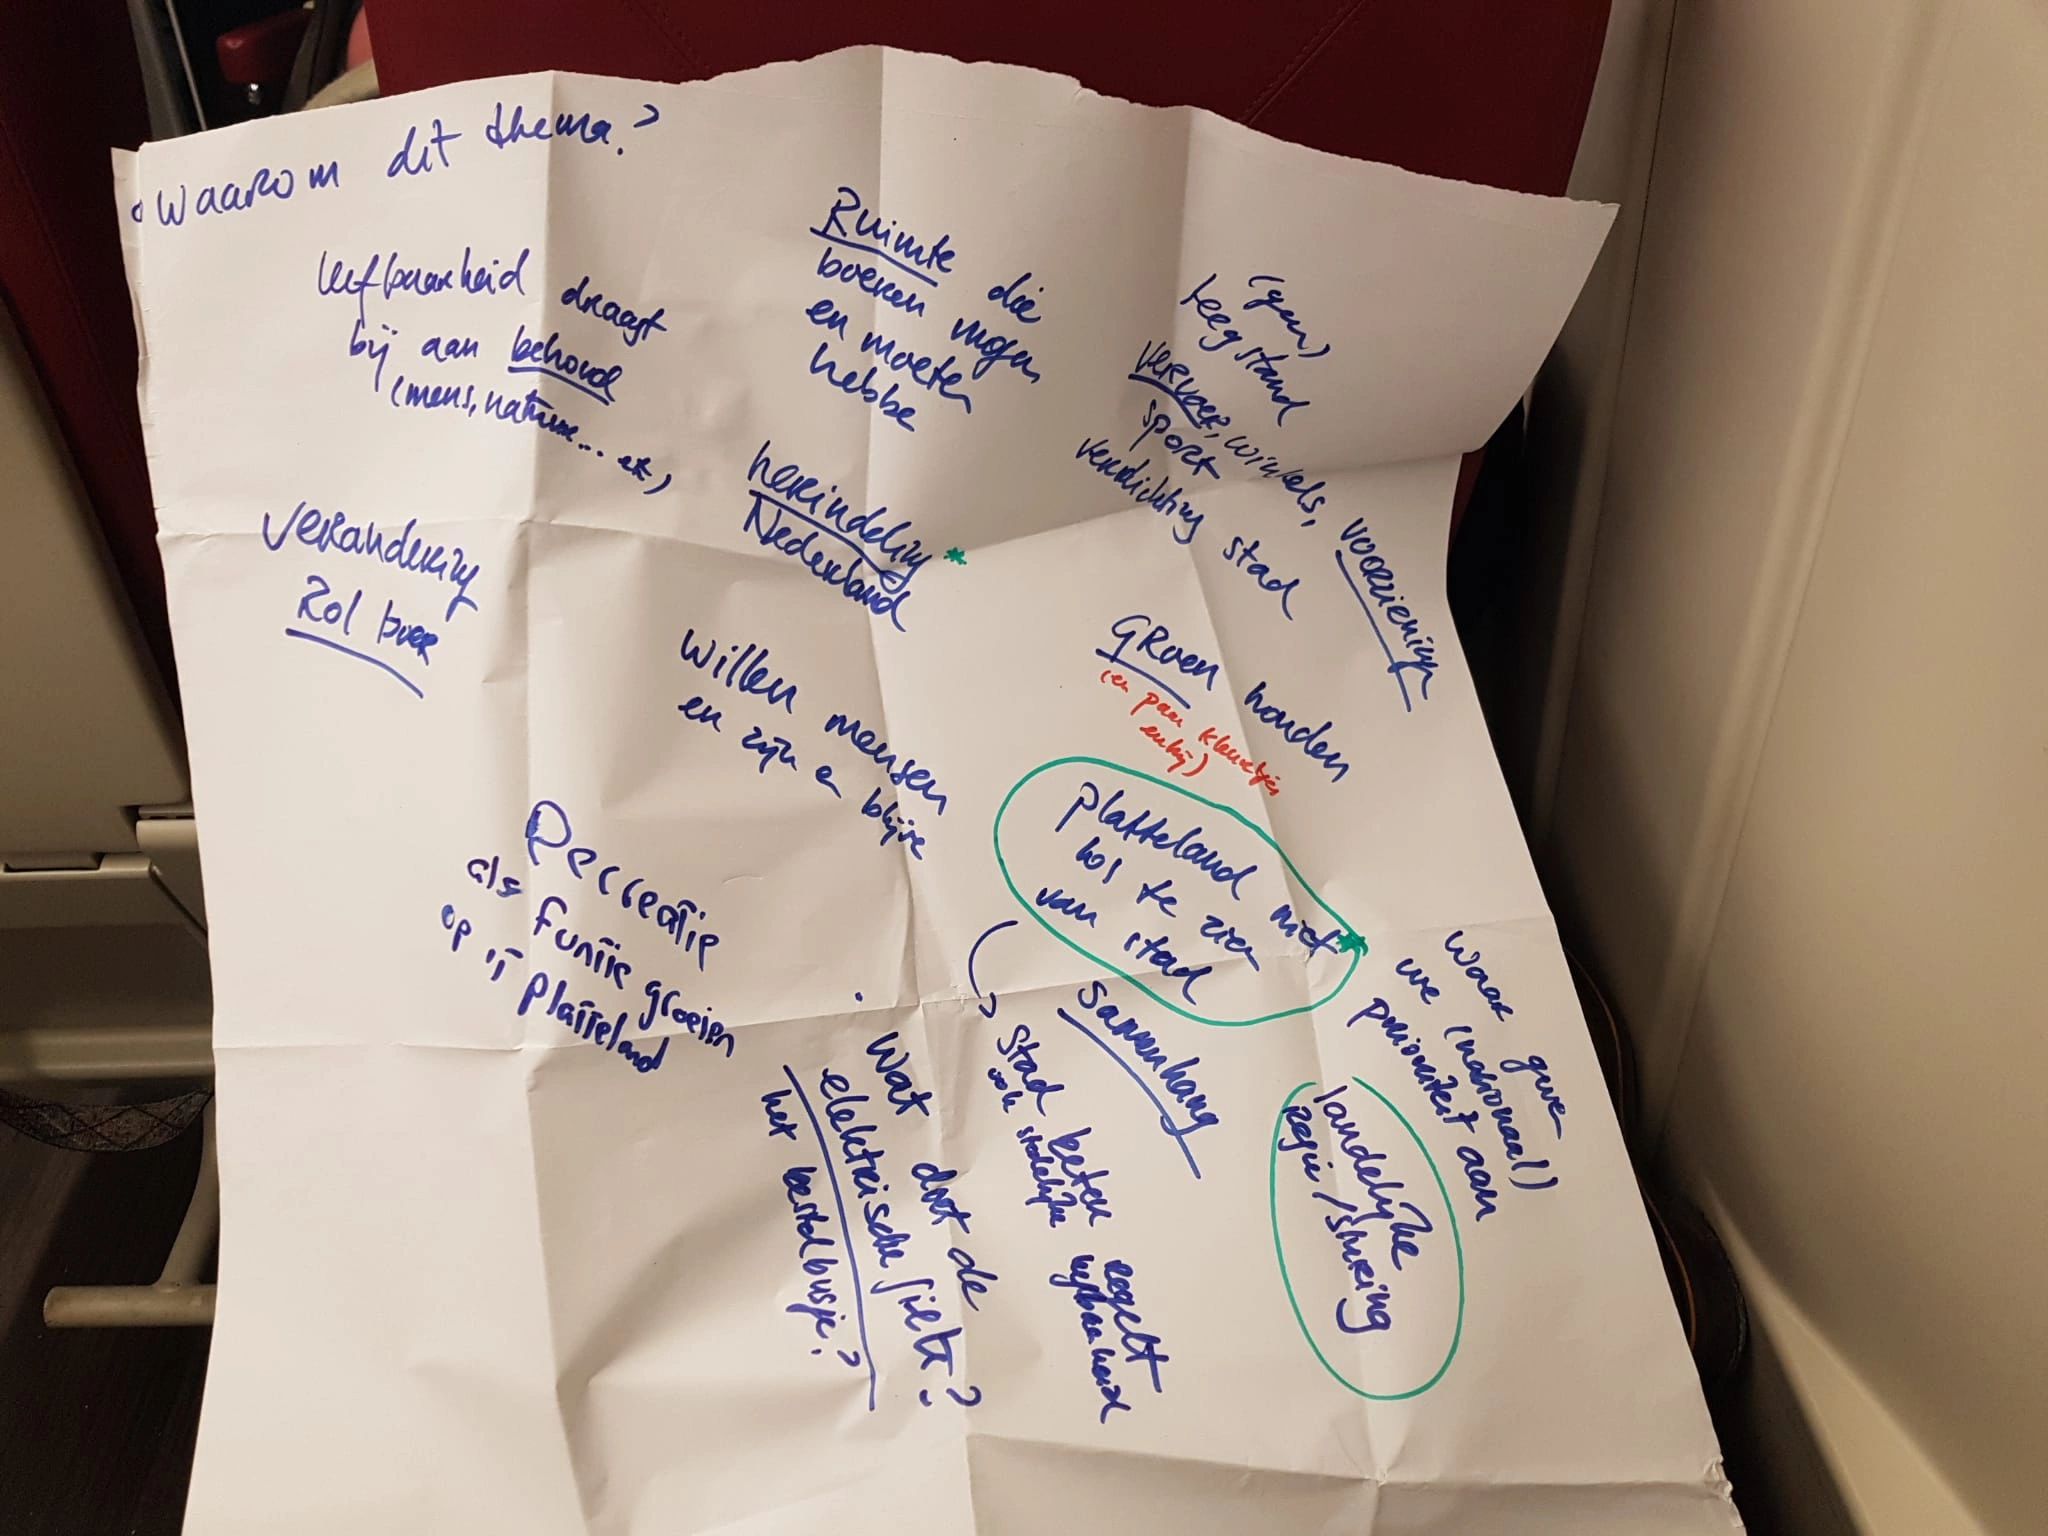 Waarom dit thema?
leefbaarheid draagt
bij aan behoud
(mens, natuur... etc)
Ruimte die
boeren mogen
en moeten
hebbe
(geen)
leegstand
vervoer, winkels, voorziening
sport
verdichting stad
herindeling *
Nederland
Verandering
Rol boer
Groen houden
(en paar kleurtjes
erbij)
Willen mensen
en zijn er blijve
platteland niet *
los te zien
van stad
Recreatie
als funtie groeien
op 't platteland
Samenhang
Waar geve
we (nationaal)
prioriteit aan
landelijke
Regie / sturing
Stad beter regelt
ook stedelijke leefbaarheid
Wat doet de
elektrische fiets?
het bestelbusje?